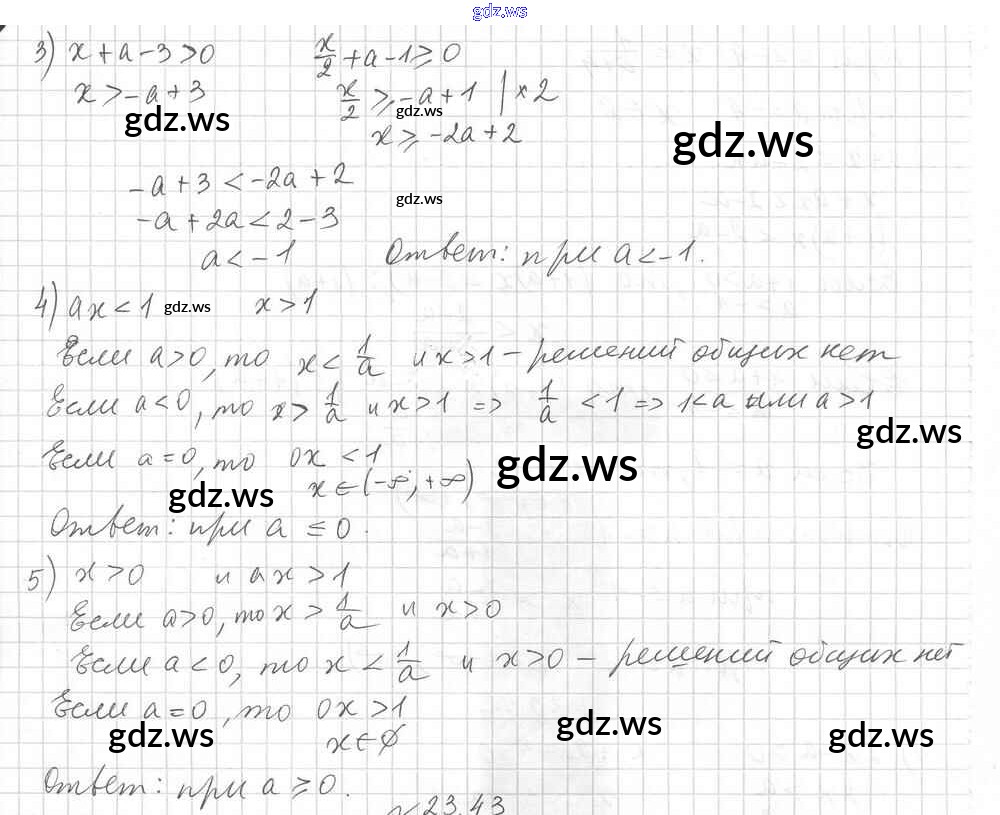 gdz.ws
3) x + a - 3 > 0    x/2 + a - 1 ≥ 0
x > -a + 3    x/2 ≥ -a + 1 | × 2
gdz.ws    gdz.ws
x ≥ -2a + 2    gdz.ws
-a + 3 < -2a + 2
gdz.ws
-a + 2a < 2 - 3
a < -1    Ответ: при a < -1.
4) ax < 1 gdz.ws    x > 1
Если a > 0, то x < 1/a и x > 1 – решений общих нет
Если a < 0, то x > 1/a и x > 1 => 1/a < 1 => 1 < a или a > 1
gdz.ws
Если a = 0, то 0x < 1    gdz.ws
gdz.ws    x ∈ (-∞; +∞)
Ответ: при a ≤ 0.
5) x > 0    и ax > 1
Если a > 0, то x > 1/a и x > 0
Если a < 0, то x < 1/a и x > 0 – решений общих нет
Если a = 0, то 0x > 1
gdz.ws    gdz.ws    gdz.ws
x ∈ ∅
Ответ: при a ≥ 0.
№ 23.43